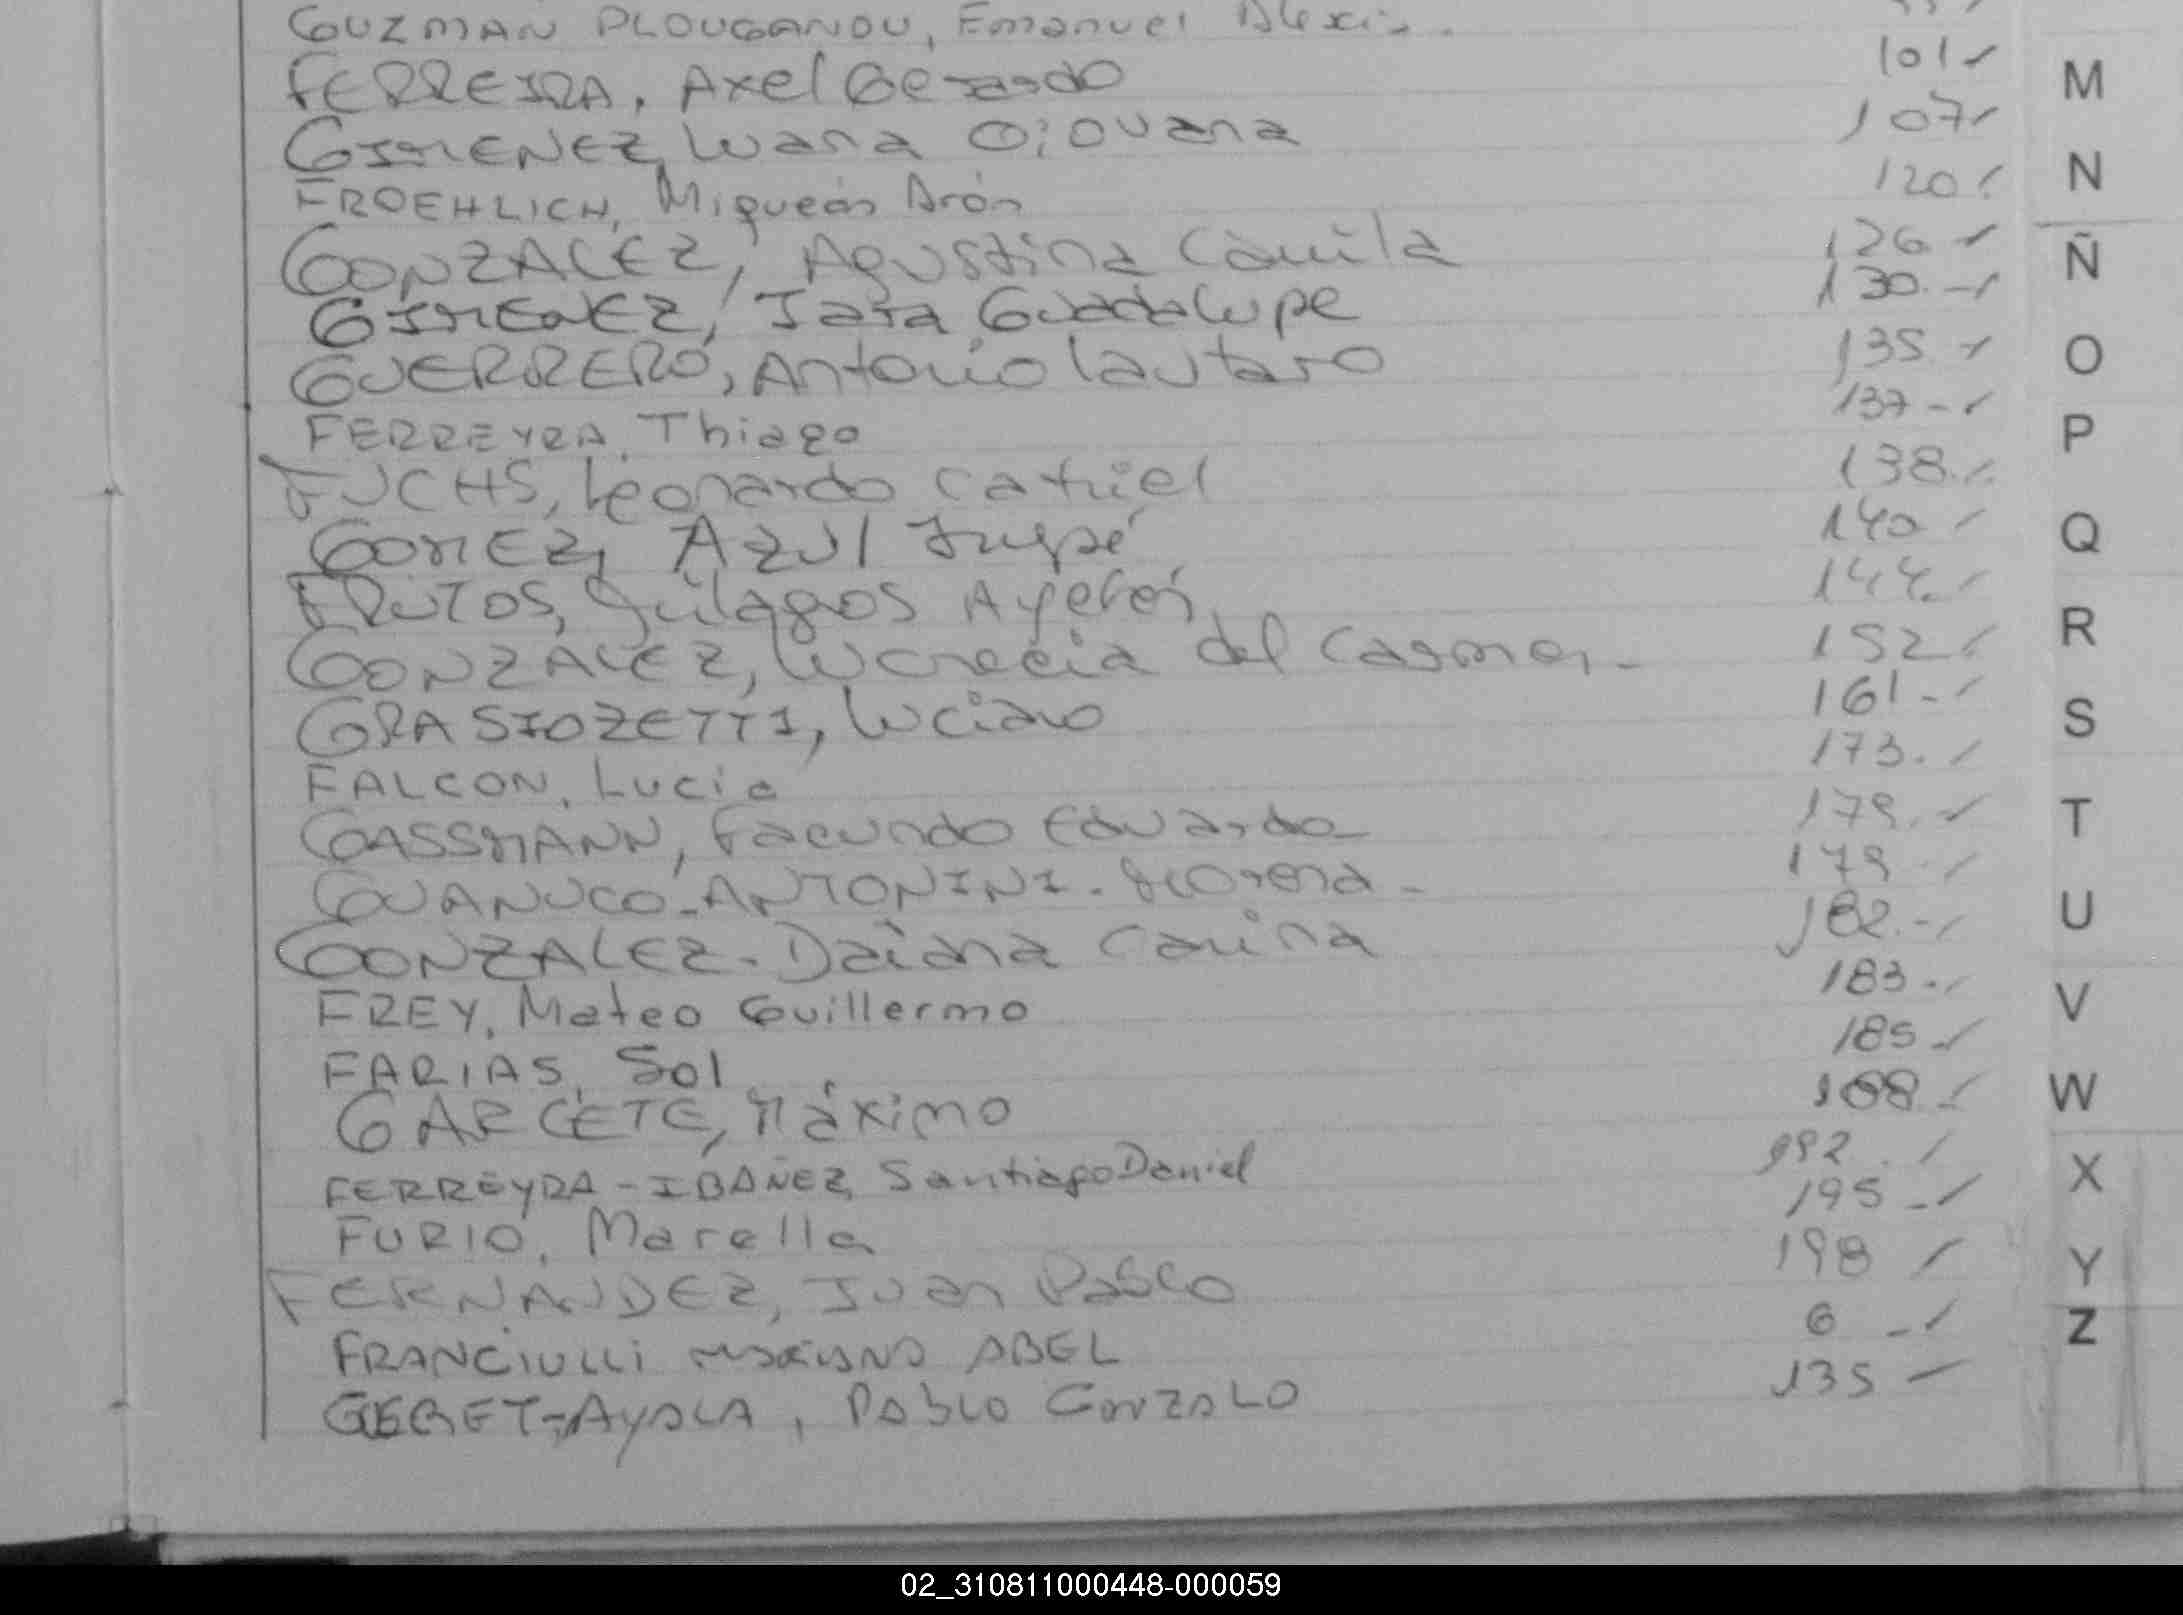 GUZMAN PLOUGANOU, Emanuel Alexis.
FERREIRA, Axel Gerardo 101
GIMENEZ, Luana Giovana 107
FROEHLICH, Miqueas Arón 120
GONZALEZ, Agustina Camila 126
GIMENEZ, Iara Guadalupe 130.-
GUERRERO, Antonio Lautaro 135
FERREYRA, Thiago 137-
FUCHS, Leonardo Catriel 138.
GOMEZ, Azul Irupé 140
FRUTOS, Milagros Ayelén 144.
GONZALEZ, Lucrecia del Carmen.- 152
GRASIOZETTI, Luciano 161-
FALCON, Lucia 173.
GASSMANN, Facundo Eduardo 179.
GUANUCO-ANTONINI. Morena- 179
GONZALEZ. Daiana Carina 182.-
FREY, Mateo Guillermo 183.
FARIAS, Sol 185
GARCETE, Máximo 188
FERREYRA-IBAÑEZ, Santiago Daniel 192.
FURIO, Marella 195-
FERNANDEZ, Juan Pablo 198
FRANCIULLI MARIANO ABEL 6 -
GEBET-AYALA, PABLO GONZALO 135
M
N
Ñ
O
P
Q
R
S
T
U
V
W
X
Y
Z
02_310811000448-000059